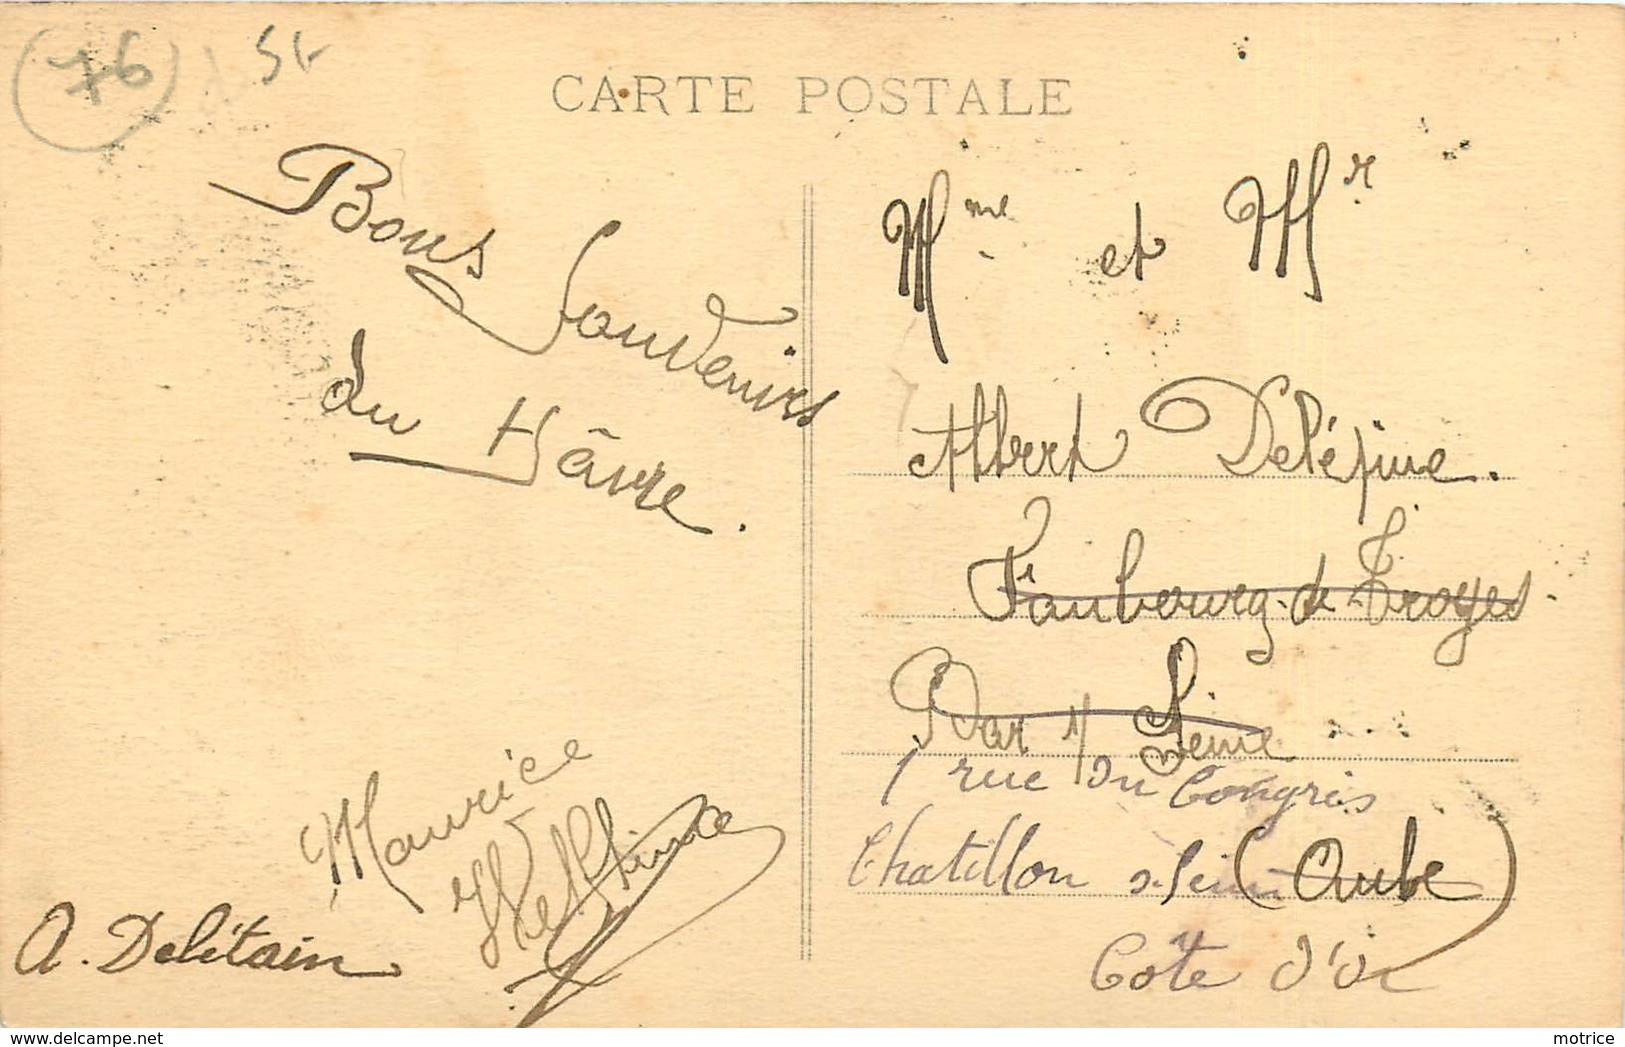 76
CARTE POSTALE
Bons Souvenirs
du Hâvre.
Maurice
A. Delétain
Mme et Mr
Albert Delépine.
Faubourg de Troyes
Bar s/ Seine
1 rue du Congrès
Chatillon s. Seine (Aube)
Côte d'Or
motrice